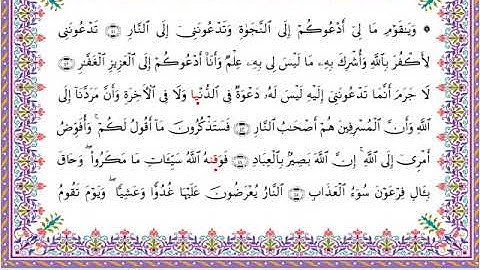 ۞ وَيَٰقَوْمِ مَا لِىٓ أَدْعُوكُمْ إِلَى ٱلنَّجَوٰةِ وَتَدْعُونَنِىٓ إِلَى ٱلنَّارِ ۝٤١ تَدْعُونَنِى
لِأَكْفُرَ بِٱللَّهِ وَأُشْرِكَ بِهِۦ مَا لَيْسَ لِى بِهِۦ عِلْمٌ وَأَنَا۠ أَدْعُوكُمْ إِلَى ٱلْعَزِيزِ ٱلْغَفَّٰرِ ۝٤٢
لَا جَرَمَ أَنَّمَا تَدْعُونَنِىٓ إِلَيْهِ لَيْسَ لَهُۥ دَعْوَةٌ فِى ٱلدُّنْيَا وَلَا فِى ٱلْأَخِرَةِ وَأَنَّ مَرَدَّنَآ إِلَى
ٱللَّهِ وَأَنَّ ٱلْمُسْرِفِينَ هُمْ أَصْحَٰبُ ٱلنَّارِ ۝٤٣ فَسَتَذْكُرُونَ مَآ أَقُولُ لَكُمْ ۚ وَأُفَوِّضُ
أَمْرِىٓ إِلَى ٱللَّهِ ۚ إِنَّ ٱللَّهَ بَصِيرٌۢ بِٱلْعِبَادِ ۝٤٤ فَوَقَىٰهُ ٱللَّهُ سَيِّـَٔاتِ مَا مَكَرُوا۟ ۖ وَحَاقَ
بِـَٔالِ فِرْعَوْنَ سُوٓءُ ٱلْعَذَابِ ۝٤٥ ٱلنَّارُ يُعْرَضُونَ عَلَيْهَا غُدُوًّا وَعَشِيًّا ۖ وَيَوْمَ تَقُومُ